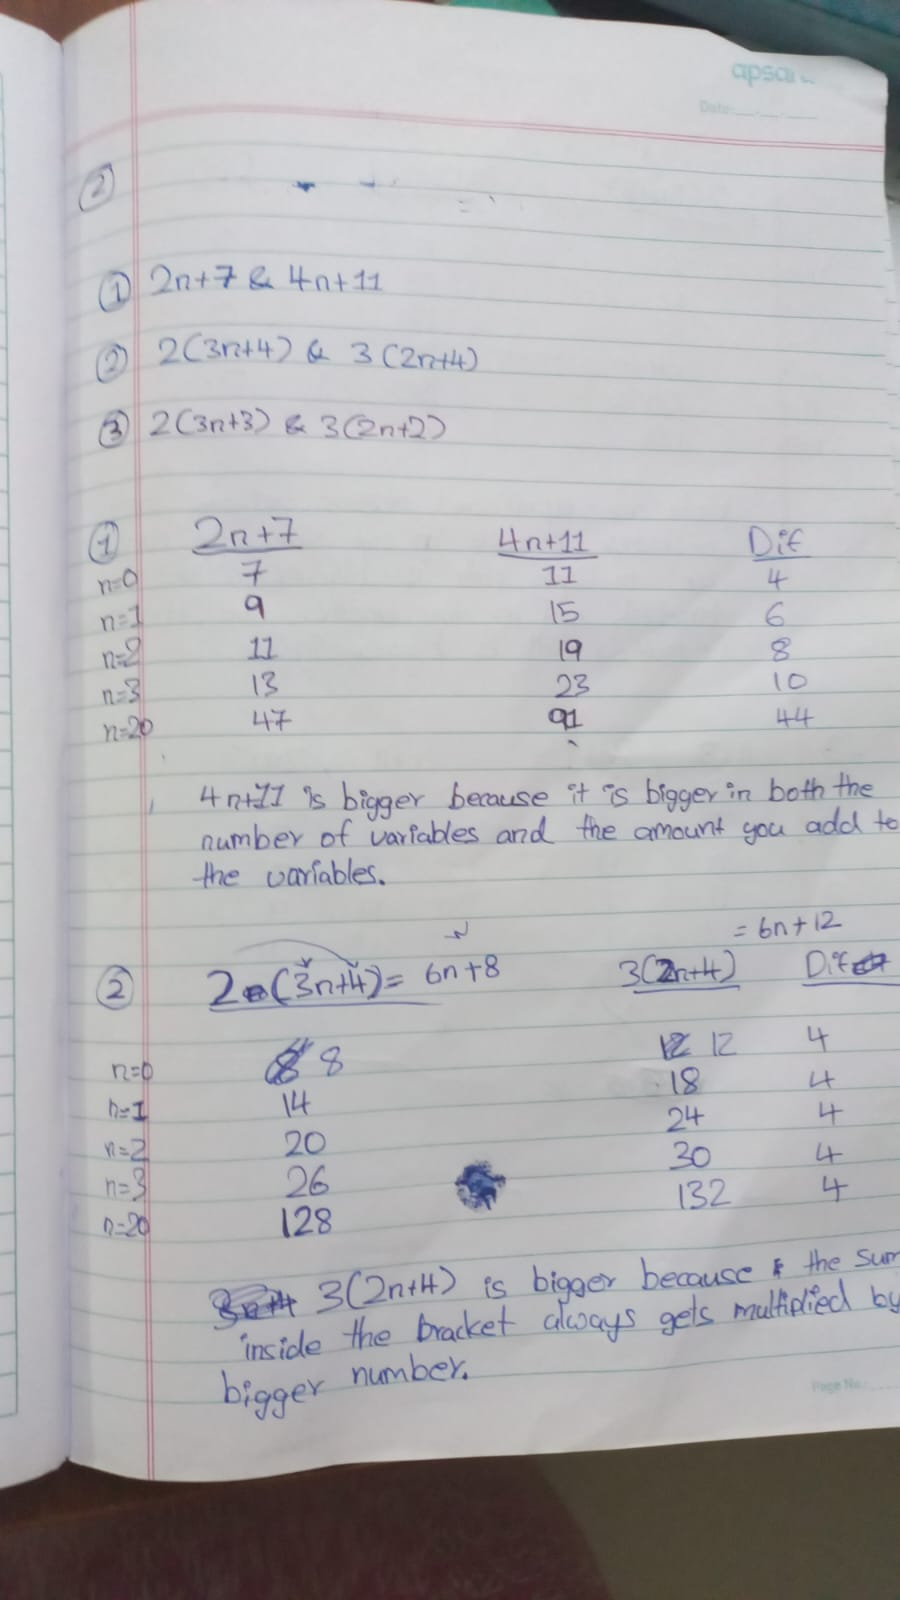 apsar
Date:
②
① 2n+7 & 4n+11
② 2(3n+4) & 3(2n+4)
③ 2(3n+3) & 3(2n+2)
① 2n+7 4n+11 Dif
n=0 7 11 4
n=1 9 15 6
n=2 11 19 8
n=3 13 23 10
n=20 47 91 44
4n+11 is bigger because it is bigger in both the
number of variables and the amount you add to
the variables.
= 6n+12
② 2(3n+4) = 6n+8 3(2n+4) Dif
n=0 8 12 4
n=1 14 18 4
n=2 20 24 4
n=3 26 30 4
n=20 128 132 4
3(2n+4) is bigger because the sum
inside the bracket always gets multiplied by
bigger number.
Page No.